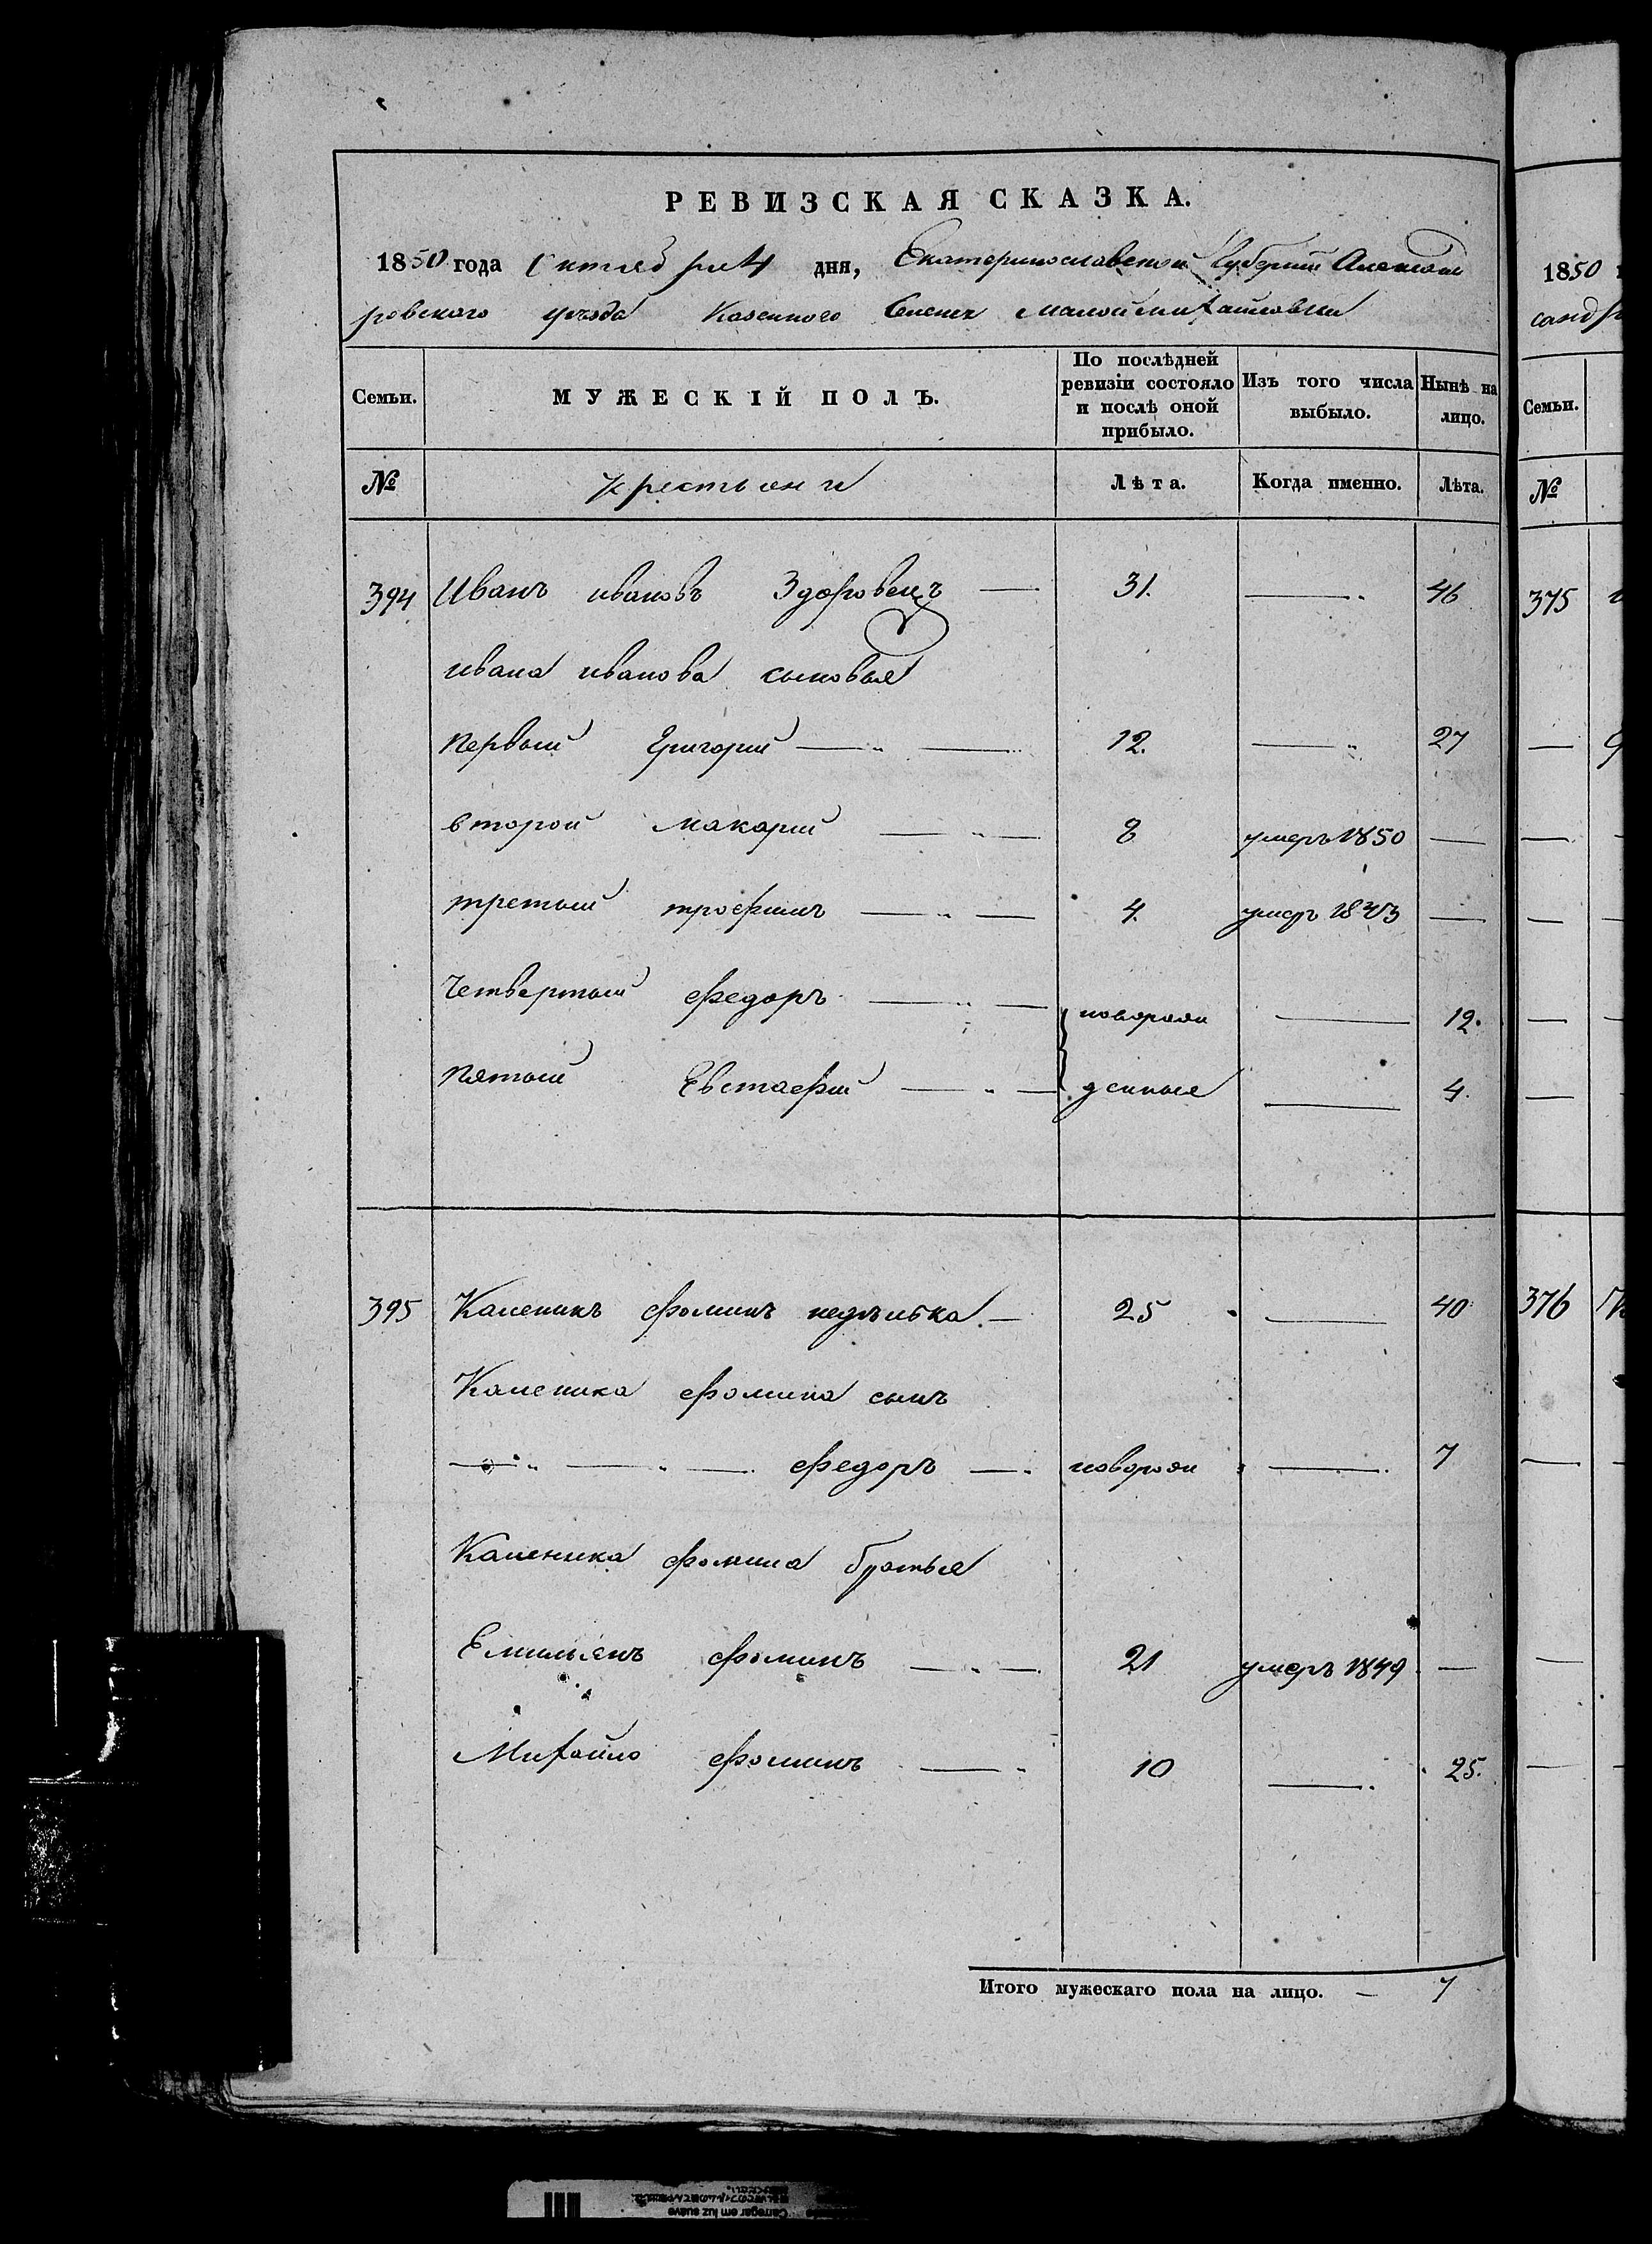 РЕВИЗСКАЯ СКАЗКА.
1850 года Октября 4 дня, Екатеринославской Губернии Александ
ровского уезда Казенного Селения малой михайловки
Семьи. МУЖЕСКІЙ ПОЛЪ. По послѣдней ревизіи состояло и послѣ оной прибыло. Изъ того числа выбыло. Нынѣ на лицо.
№ крестьяни Лѣта. Когда именно. Лѣта.
394 Иванъ ивановъ Здоровецъ — 31. — 46
ивана иванова сыновья
первый Григорий — 12. — 27
второй макарий — 8 умеръ 1850 —
третий трофимъ — 4. умеръ 1843 —
Четвертый федоръ — новорож — 12.
пятый Евстафий — денные — 4.
395 Каленикъ фоминъ — 25 — 40
Каленика фомина сынъ
— федоръ — новорож — 7
Каленика фомина братья
Емильянъ фоминъ — 21 умеръ 1849 —
Михайло фоминъ — 10 — 25.
Итого мужескаго пола на лицо. — 7
1850
санд
Семьи.
№
375
376